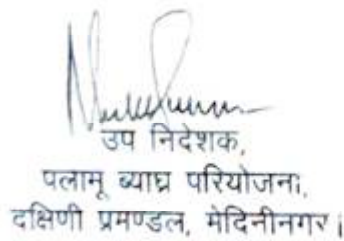 उप निदेशक,
पलामू ब्याघ्र परियोजना,
दक्षिणी प्रमण्डल, मेदिनीनगर।